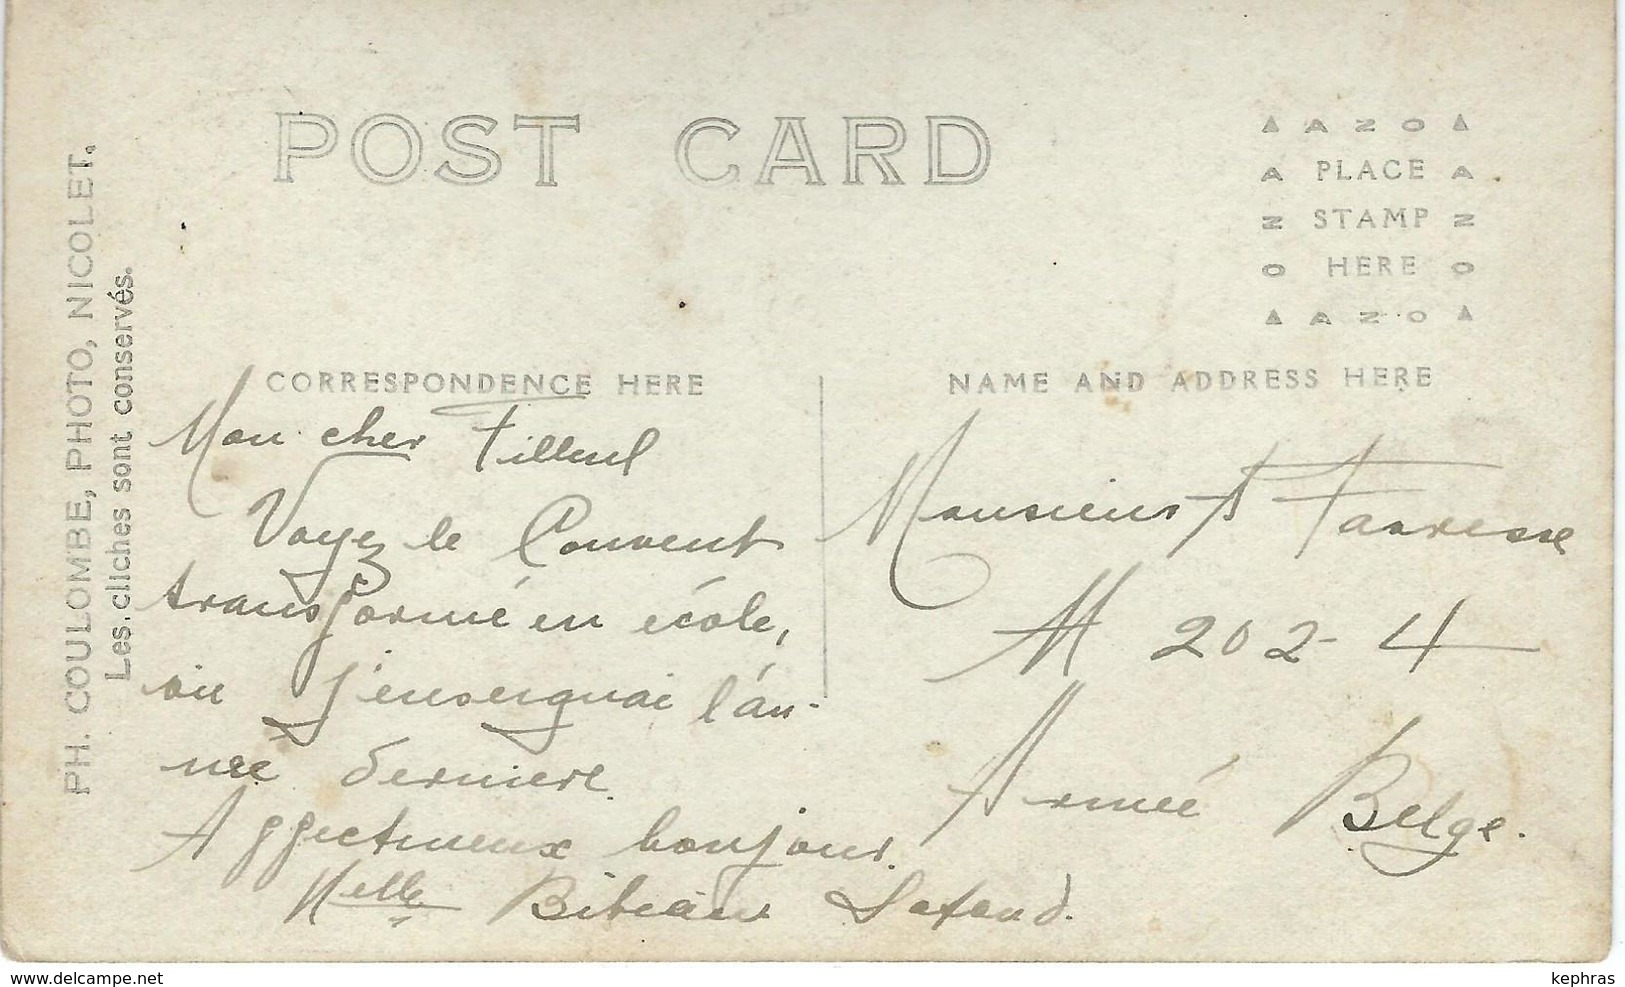 POST CARD
AZO
PLACE
STAMP
HERE
AZO
PH. COULOMBE, PHOTO, NICOLET.
Les clichés sont conservés.
CORRESPONDENCE HERE
Mon cher Filleul
Voyez le Couvent
transformé en école,
où j'enseignai l'an-
née derniere.
Affectueux bonjour.
Melle
NAME AND ADDRESS HERE
Monsieur A
M 202-4
Armée Belge.
www.delcampe.net
kephras